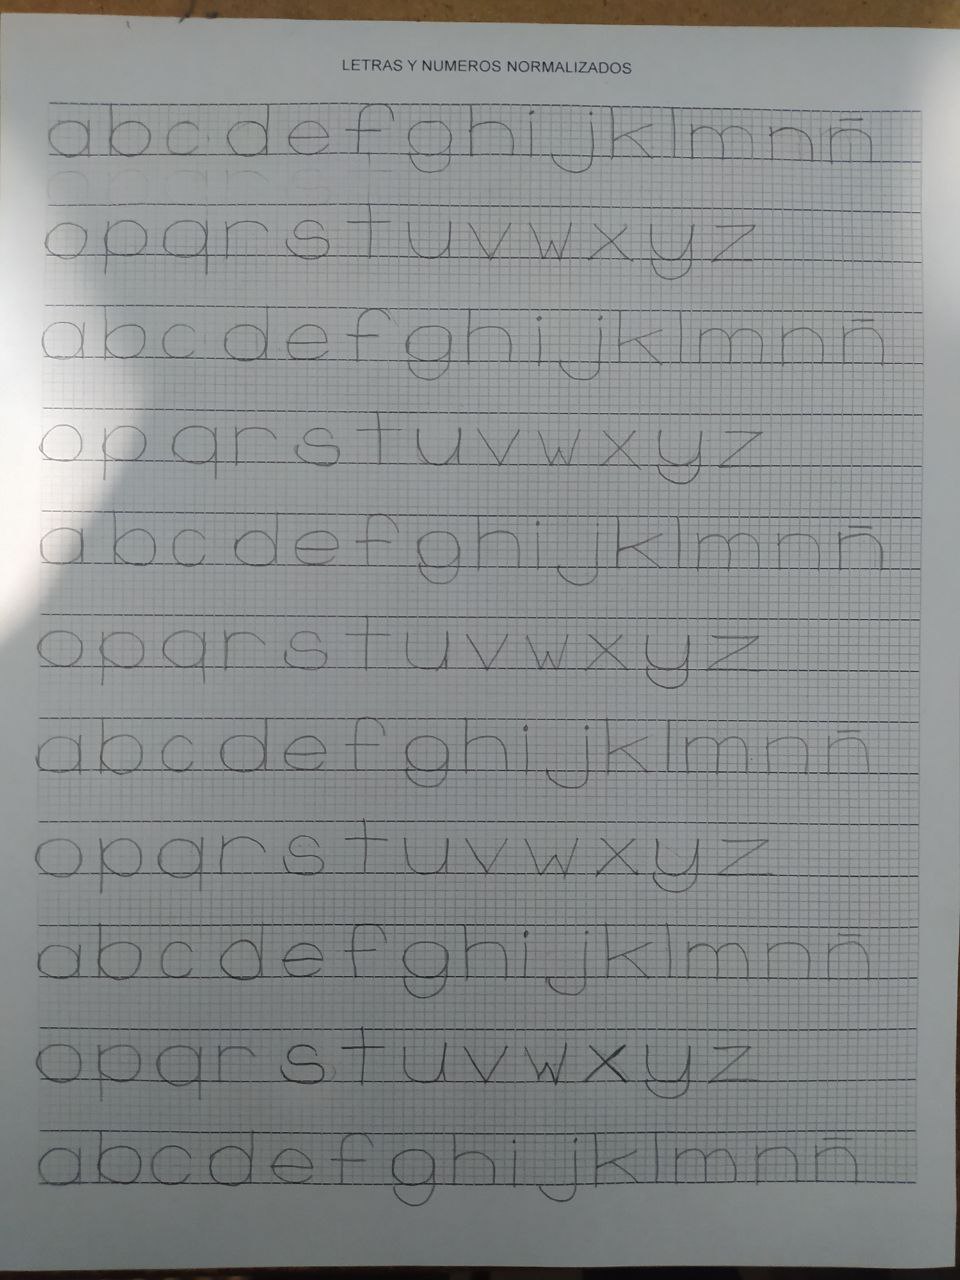 LETRAS Y NUMEROS NORMALIZADOS
a b c d e f g h i j k l m n ñ
o p q r s t u v w x y z
a b c d e f g h i j k l m n ñ
o p q r s t u v w x y z
a b c d e f g h i j k l m n ñ
o p q r s t u v w x y z
a b c d e f g h i j k l m n ñ
o p q r s t u v w x y z
a b c d e f g h i j k l m n ñ
o p q r s t u v w x y z
a b c d e f g h i j k l m n ñ